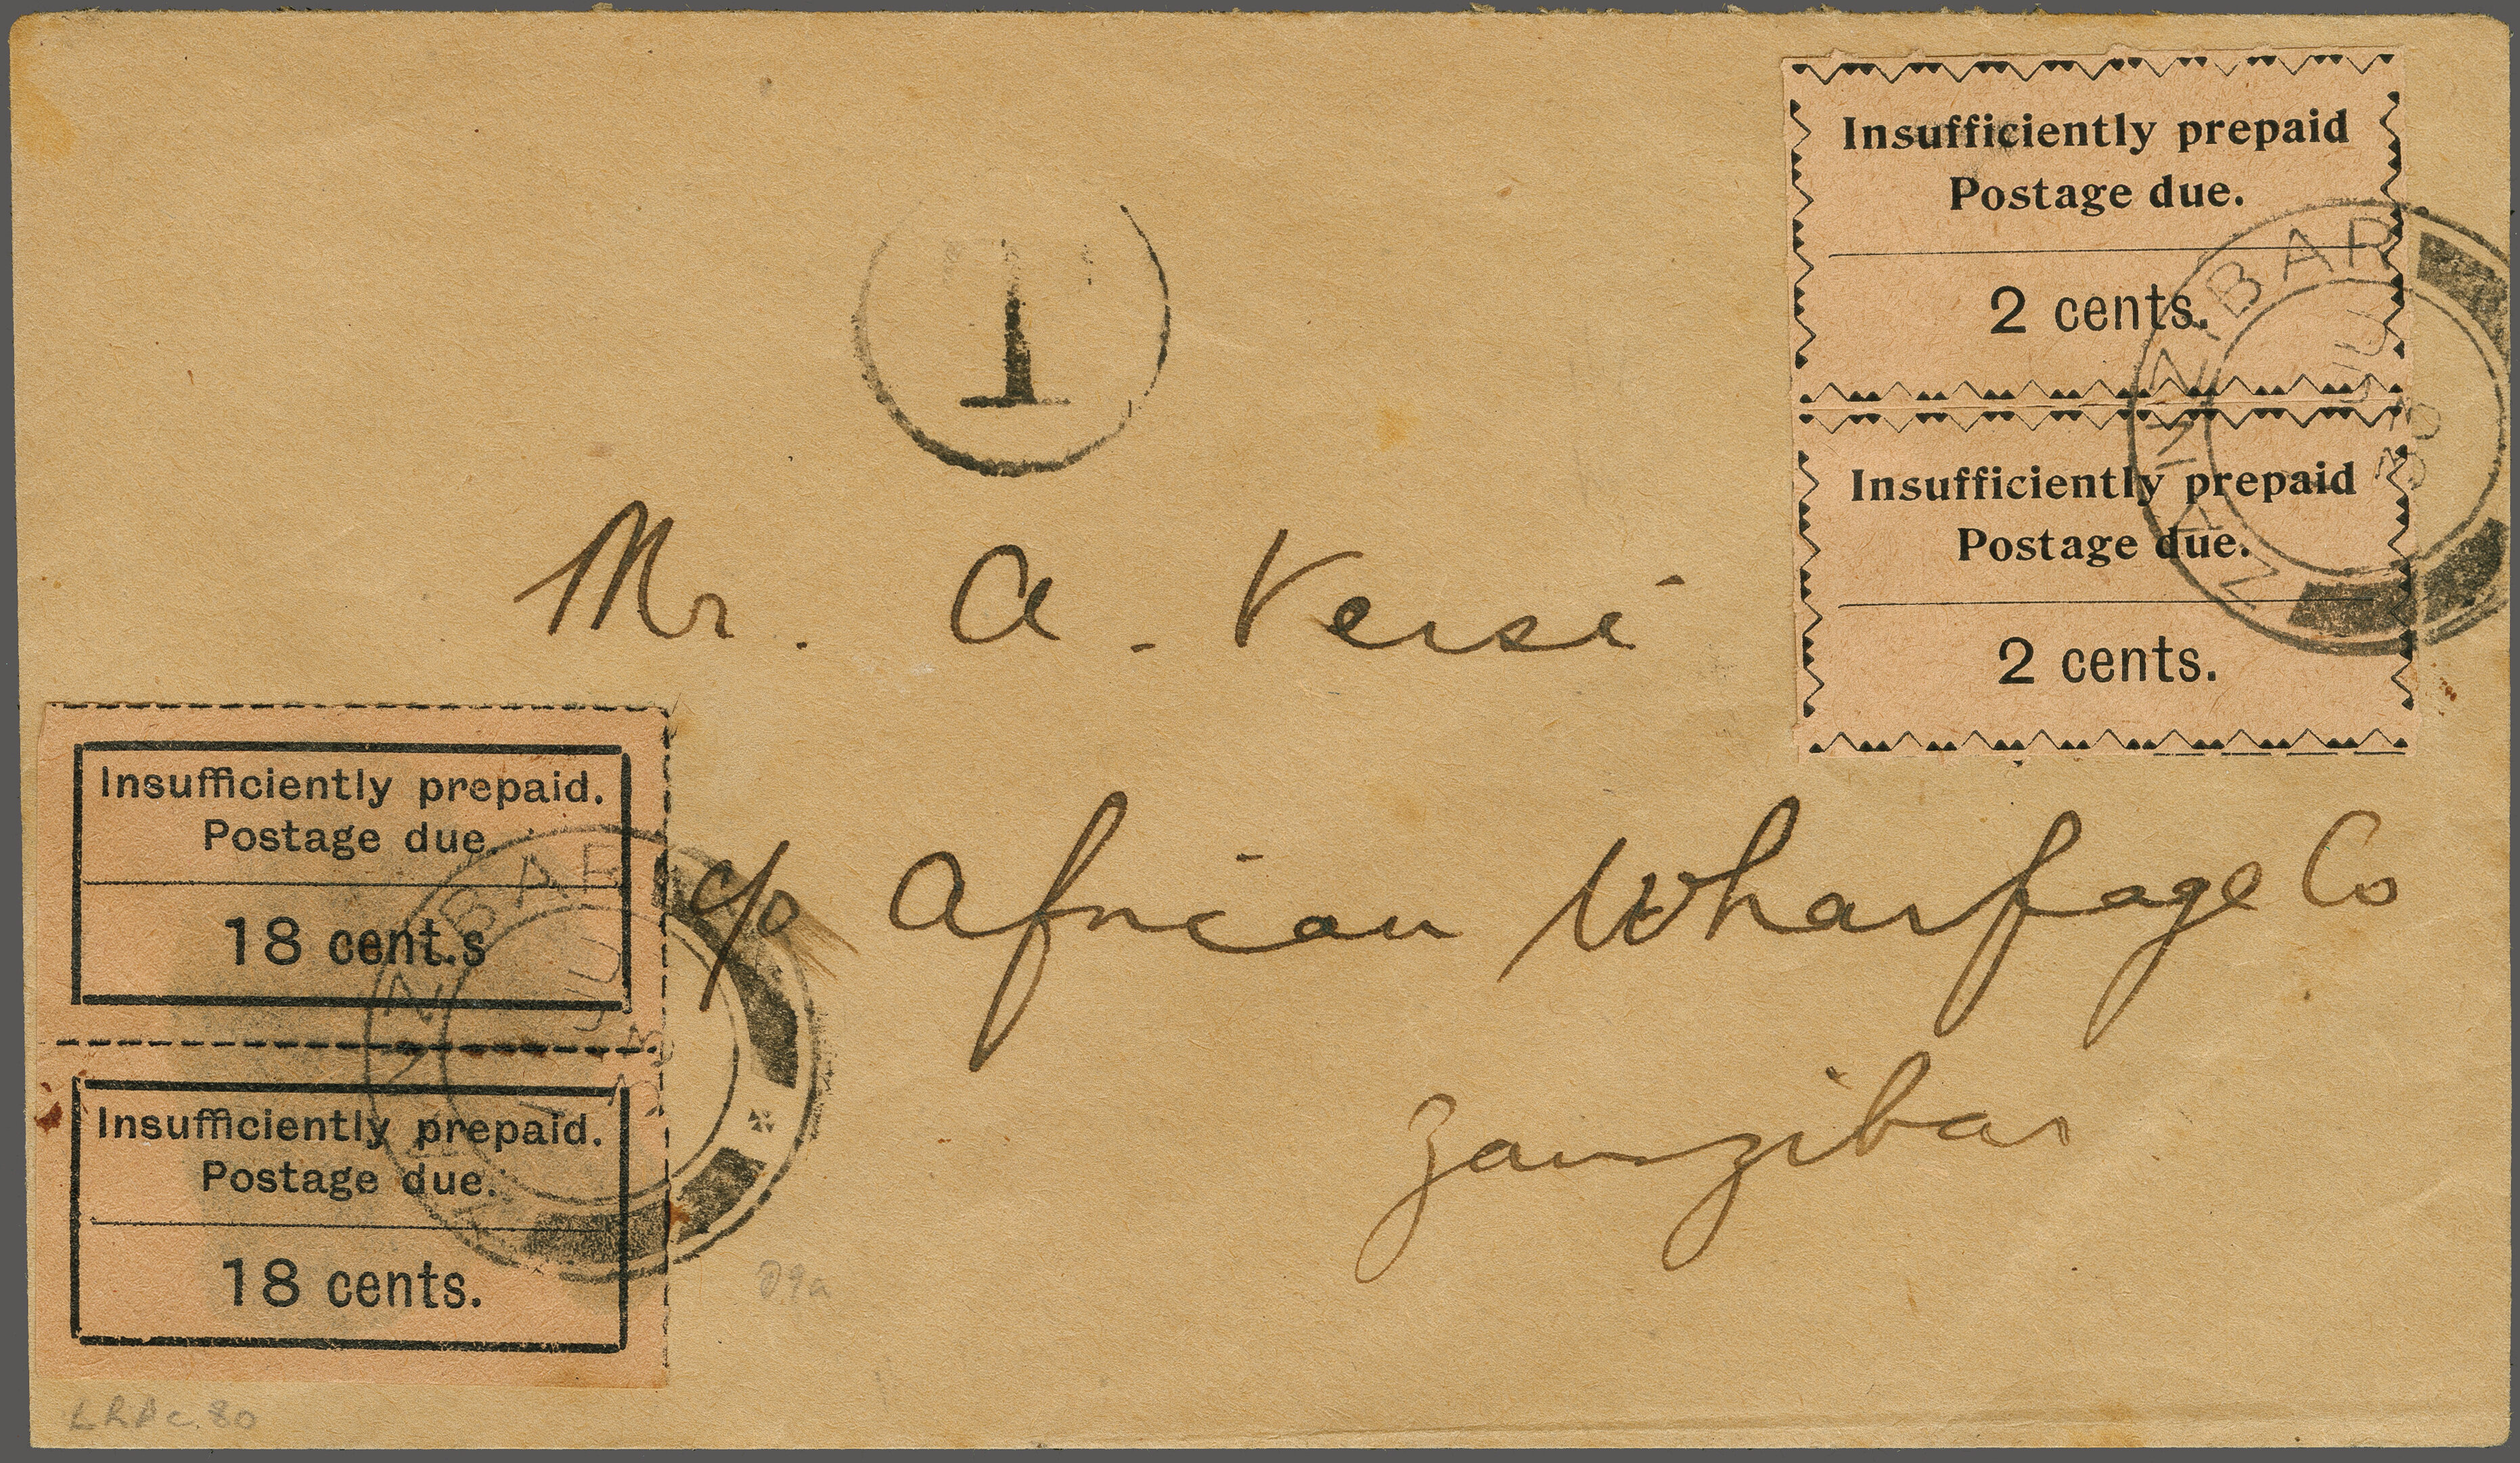 T
Insufficiently prepaid
Postage due.
2 cents.
Insufficiently prepaid
Postage due.
2 cents.
ZANZIBAR
JU
Mr. A. Versi
Insufficiently prepaid.
Postage due.
18 cent.s
Insufficiently prepaid.
Postage due.
18 cents.
ZANZIBAR
JU
c/o African Wharfage Co
Zanzibar
D9a